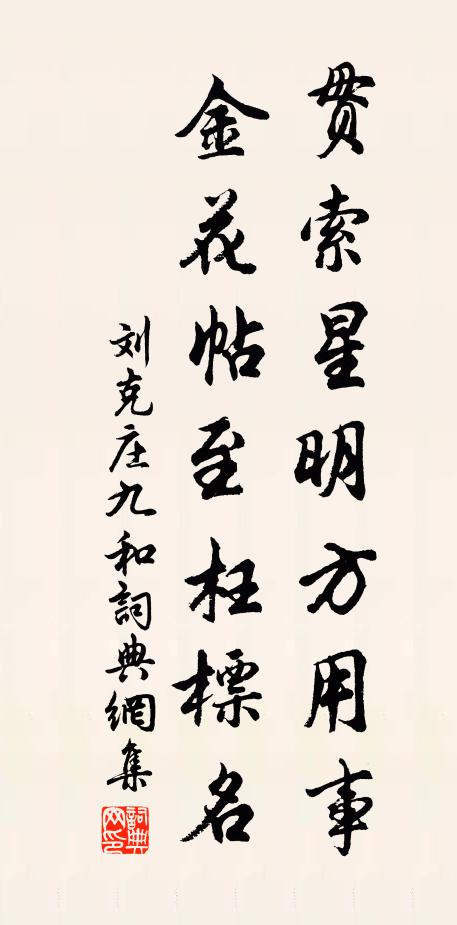 贯索星明方用事
金花帖至枉標名
刘克庄九和詞典網集
詞典網印